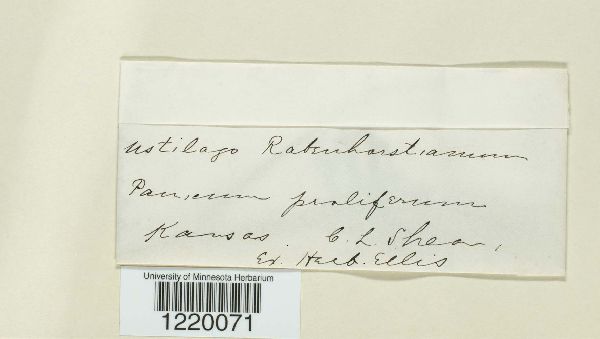 Ustilago Rabenhorstianum
Panicum proliferum
Kansas. C. L. Shear,
Ex. Herb. Ellis
University of Minnesota Herbarium
1220071